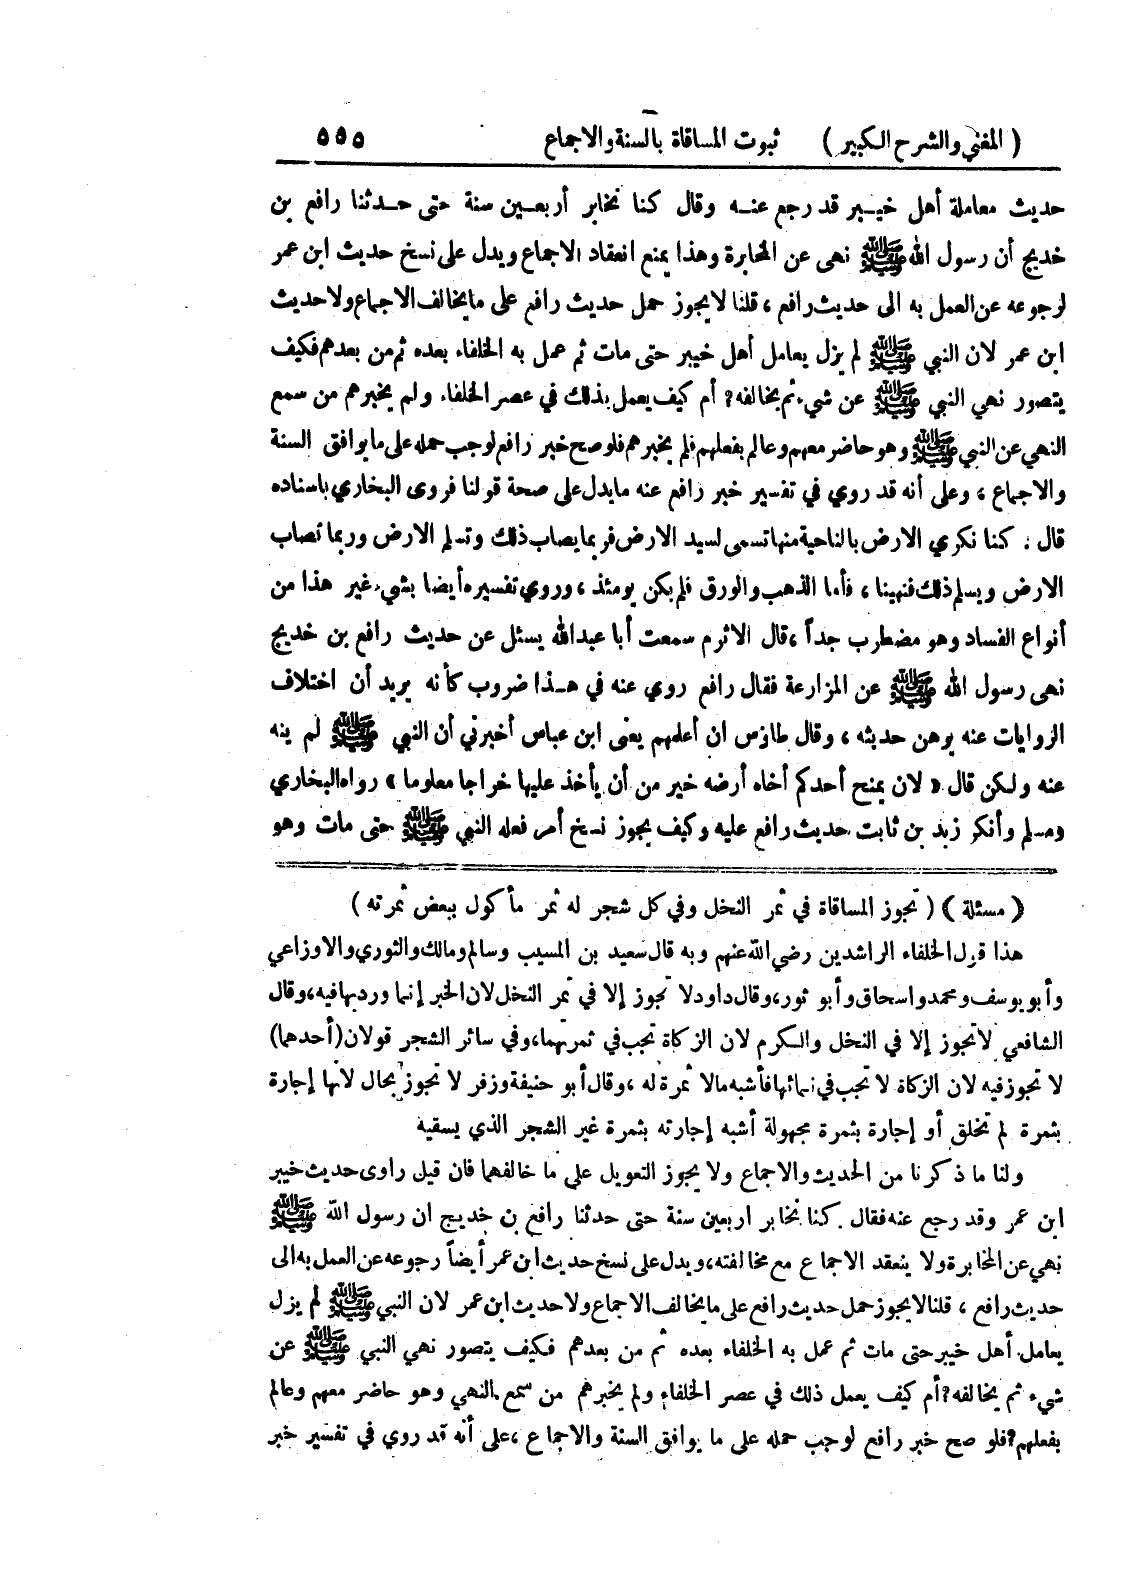 ( المغني والشرح الكبير ) ثبوت المساقاة بالسنة والاجماع ٥٥٥
حديث معاملة أهل خيبر قد رجع عنه وقال كنا نخابر أربعين سنة حتى حدثنا رافع بن
خديج أن رسول الله ﷺ نهى عن المخابرة وهذا يمنع انعقاد الاجماع ويدل على نسخ حديث ابن عمر
لرجوعه عن العمل به الى حديث رافع ، قلنا لا يجوز حمل حديث رافع على ما يخالف الاجماع ولا حديث
ابن عمر لان النبي ﷺ لم يزل يعامل أهل خيبر حتى مات ثم عمل به الخلفاء بعده ثم من بعدهم فكيف
يتصور نهي النبي ﷺ عن شيء ثم يخالفه ؟ أم كيف يعمل بذلك في عصر الخلفاء ولم يخبرهم من سمع
النهي عن النبي ﷺ وهو حاضر معهم وعالم بفعلهم فلم يخبرهم فلو صح خبر رافع لوجب حمله على ما يوافق السنة
والاجماع ، وعلى أنه قد روي في تفسير خبر رافع عنه ما يدل على صحة قولنا فروى البخاري باسناده
قال : كنا نكري الارض بالناحية منها تسمى لسيد الارض فربما يصاب ذلك وتسلم الارض وربما تصاب
الارض ويسلم ذلك فنهينا ، فأما الذهب والورق فلم يكن يومئذ ، وروي تفسيره أيضا بشيء غير هذا من
أنواع الفساد وهو مضطرب جداً ، قال الاثرم سمعت أبا عبدالله يسئل عن حديث رافع بن خديج
نهى رسول الله ﷺ عن المزارعة فقال رافع روي عنه في هذا ضروب كأنه يريد أن اختلاف
الروايات عنه يوهن حديثه ، وقال طاوس ان أعلمهم يعني ابن عباس أخبرني أن النبي ﷺ لم ينه
عنه ولكن قال « لان يمنح أحدكم أخاه أرضه خير من أن يأخذ عليها خراجا معلوما » رواه البخاري
ومسلم وأنكر زيد بن ثابت حديث رافع عليه وكيف يجوز نسخ أمر فعله النبي ﷺ حتى مات وهو
﴿ مسئلة ﴾ ( تجوز المساقاة في ثمر النخل وفي كل شجر له ثمر مأكول ببعض ثمرته )
هذا قول الخلفاء الراشدين رضي الله عنهم وبه قال سعيد بن المسيب وسالم ومالك والثوري والاوزاعي
وأبو يوسف ومحمد واسحاق وأبو ثور ، وقال داود لا تجوز إلا في ثمر النخل لان الخبر إنما ورد بها فيه ، وقال
الشافعي لا تجوز إلا في النخل والكرم لان الزكاة تجب في ثمرتهما ، وفي سائر الشجر قولان (أحدهما)
لا تجوز فيه لان الزكاة لا تجب في نمائها فأشبه مالا ثمرة له ، وقال أبو حنيفة وزفر لا تجوز بحال لانها إجارة
بثمرة لم تخلق أو إجارة بثمرة مجهولة أشبه إجارته بثمرة غير الشجر الذي يسقيه
ولنا ما ذكرنا من الحديث والاجماع ولا يجوز التعويل على ما خالفهما فان قيل راوى حديث خيبر
ابن عمر وقد رجع عنه فقال كنا نخابر اربعين سنة حتى حدثنا رافع بن خديج ان رسول الله ﷺ
نهى عن المخابرة ولا ينعقد الاجماع مع مخالفته ، ويدل على نسخ حديث ابن عمر أيضاً رجوعه عن العمل به الى
حديث رافع ، قلنا لا يجوز حمل حديث رافع على ما يخالف الاجماع ولا حديث ابن عمر لان النبي ﷺ لم يزل
يعامل أهل خيبر حتى مات ثم عمل به الخلفاء بعده ثم من بعدهم فكيف يتصور نهي النبي ﷺ عن
شيء ثم يخالفه ؟ أم كيف يعمل ذلك في عصر الخلفاء ولم يخبرهم من سمع النهي وهو حاضر معهم وعالم
بفعلهم ؟ فلو صح خبر رافع لوجب حمله على ما يوافق السنة والاجماع ، على أنه قد روي في تفسير خبر